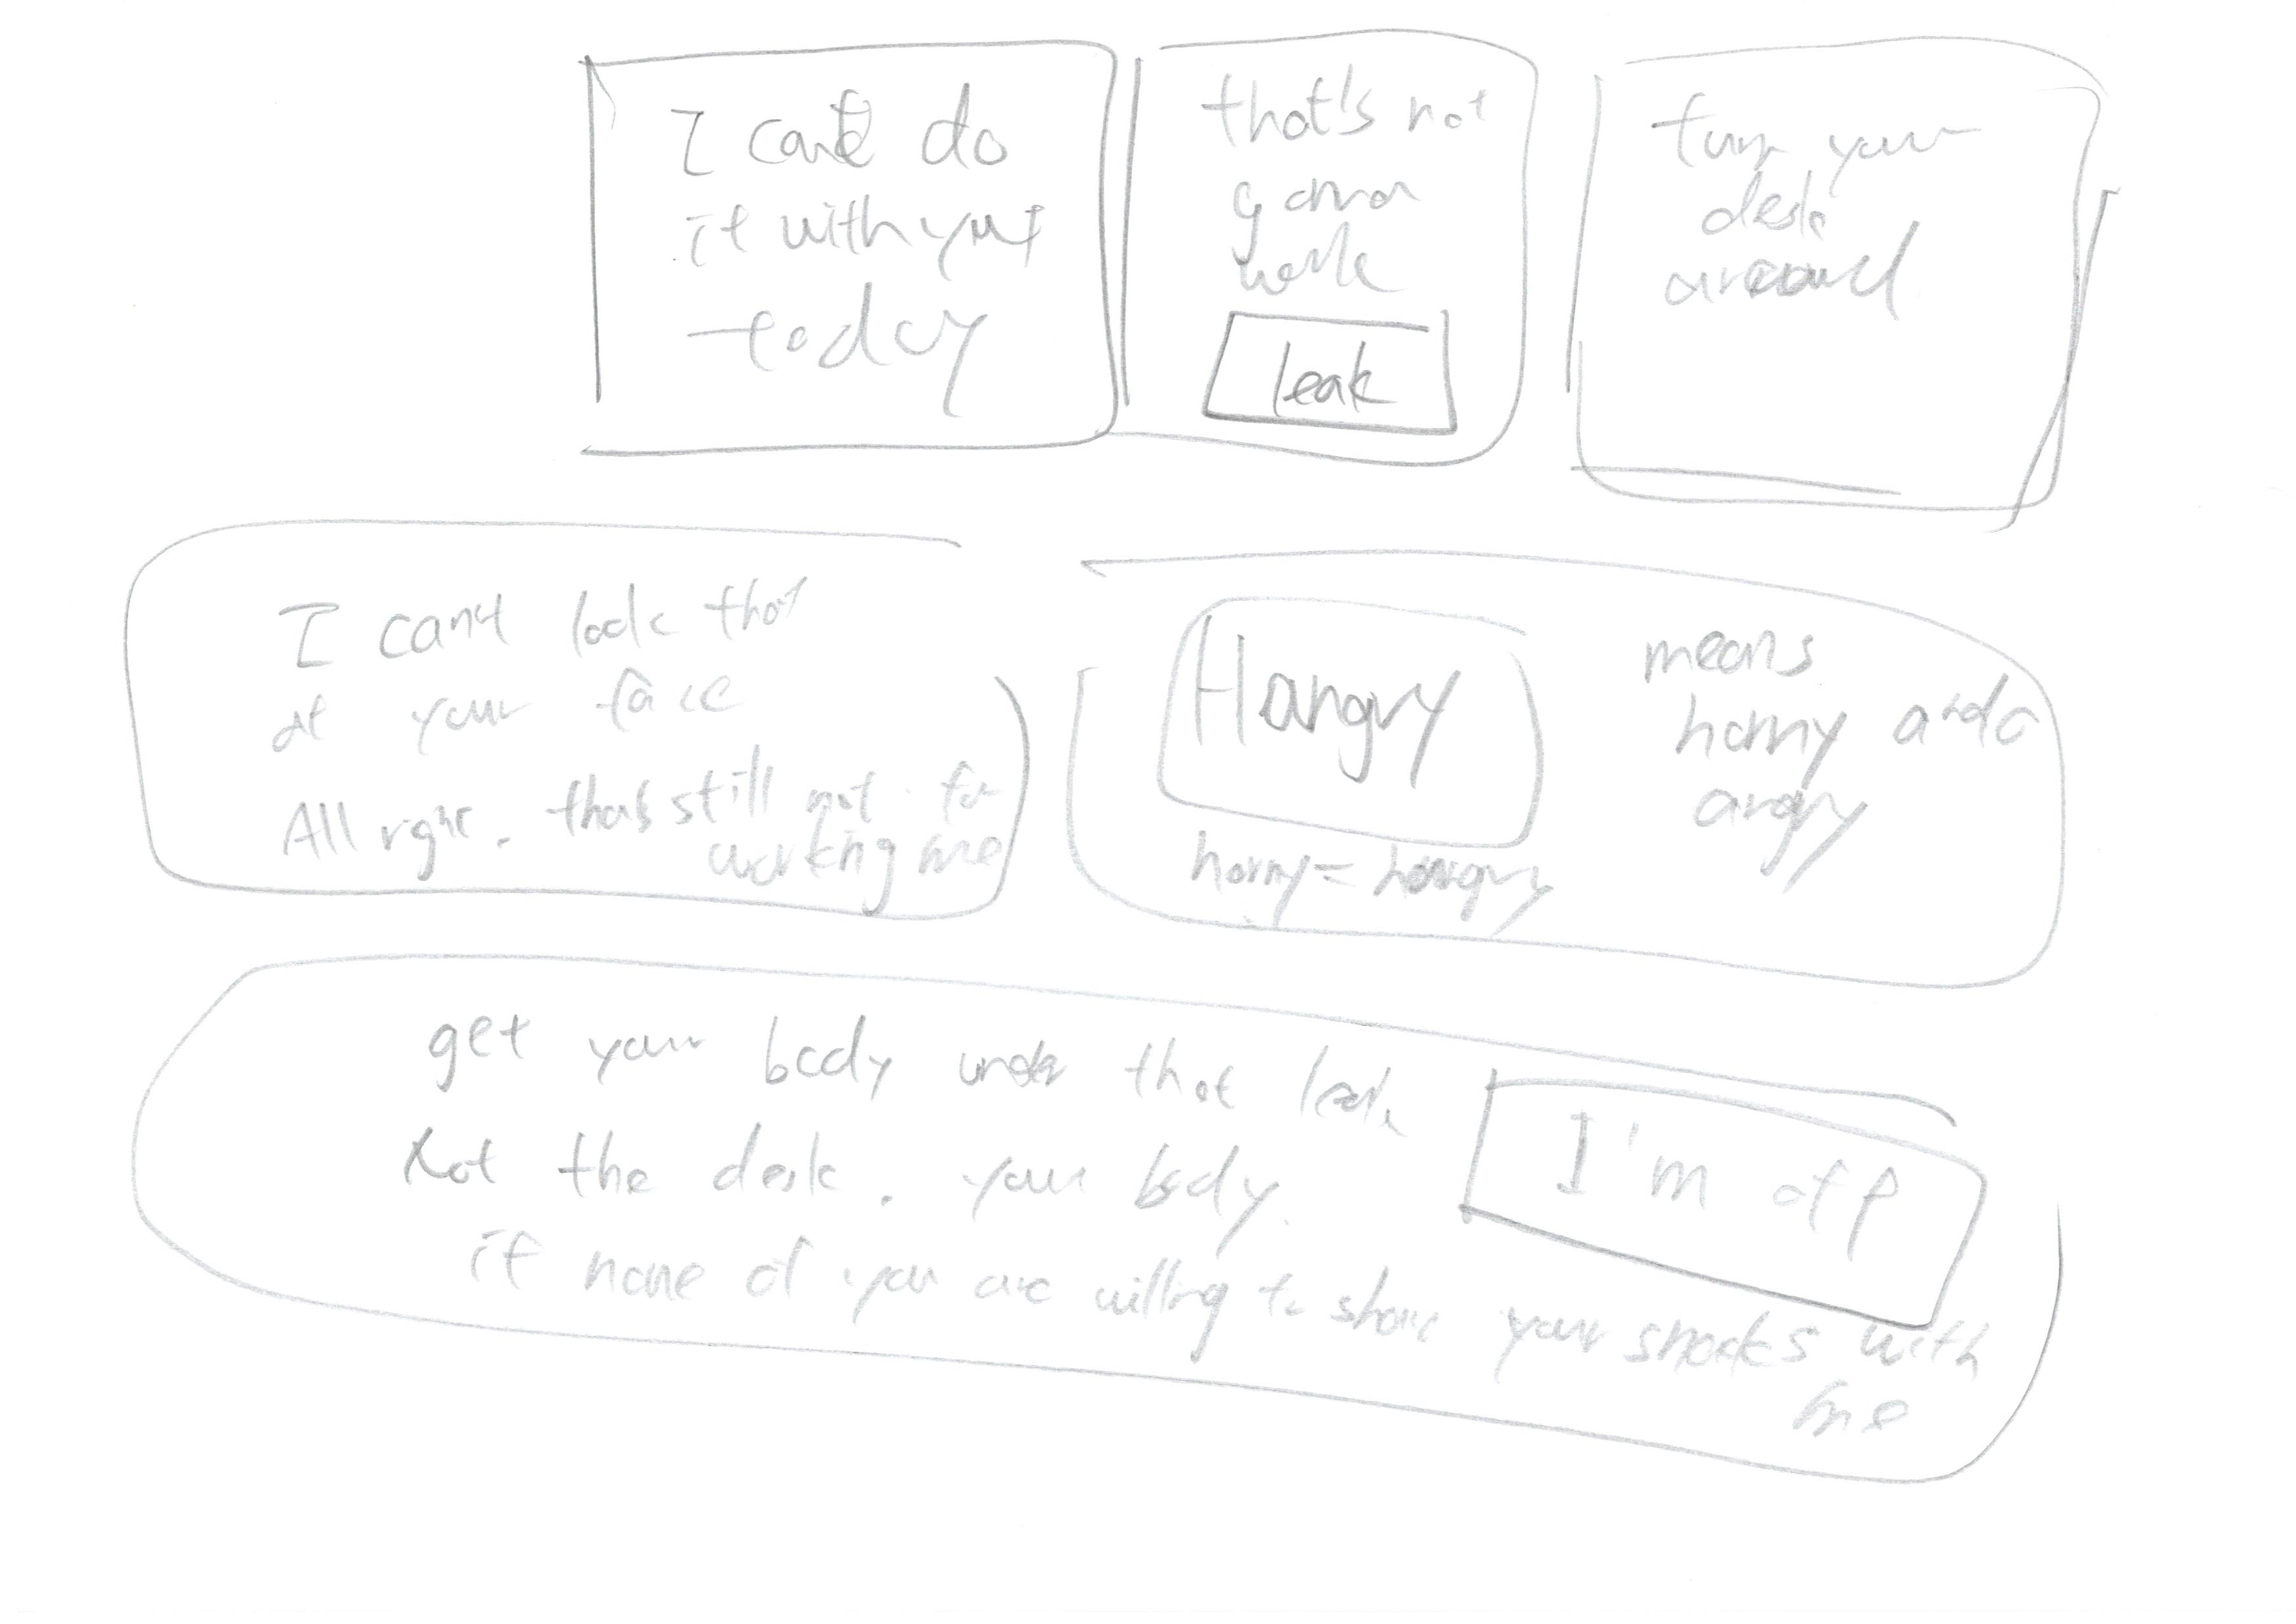 I can't do
it with you
today
that's not
gonna
work
leak
turn your
desk
around
I can't look that
at your face
All right. that's still not for
working me
Hangry
means
horny and
angry
horny = hangry
get your body under that leak
Not the desk. your body.
I'm off
if none of you are willing to share your snacks with
me